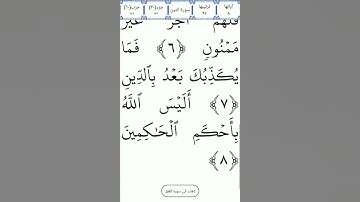 آياتها ٨
ترتيبها ٩٥
سورة التين
فَلَهُمْ أَجْرٌ غَيْرُ
مَمْنُونٍ ﴿٦﴾ فَمَا
يُكَذِّبُكَ بَعْدُ بِالدِّينِ
﴿٧﴾ أَلَيْسَ اللَّهُ
بِأَحْكَمِ الْحَاكِمِينَ
﴿٨﴾